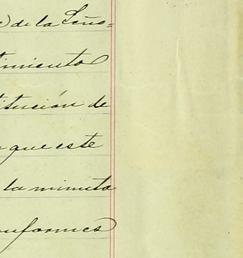 de la Seño=
timiento
titución de
que este
la minuta
nformes